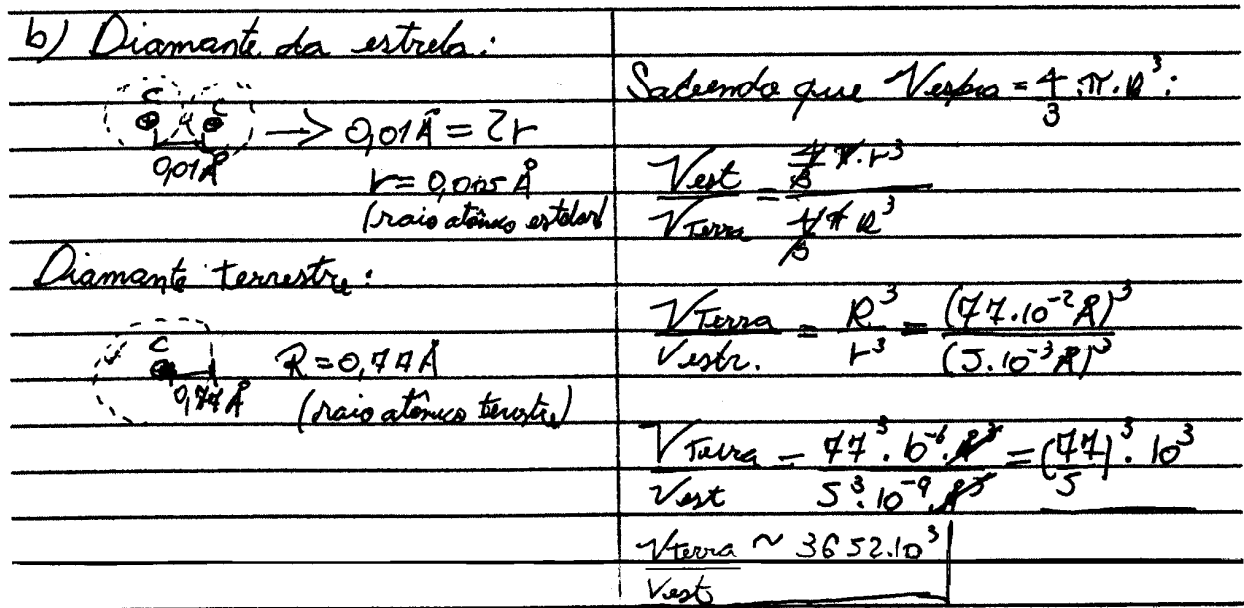 b) Diamante da estrela:
C C
0,01Å
→ 0,01Å = 2r
r = 0,005 Å
(raio atômico estelar)
Diamante terrestre:
C
0,77Å
R = 0,77Å
(raio atômico terrestre)
Sabendo que Vesfra = 4/3 . π . R³ :
Vest / VTerra = 4/3 π . r³ / 4/3 π R³
VTerra / Vestr. = R³ / r³ = (77.10⁻² Å)³ / (5.10⁻³ Å)³
VTerra / Vest = 77³ . 10⁻⁶ . Å³ / 5³ . 10⁻⁹ . Å³ = (77/5)³ . 10³
VTerra / Vest ~ 3652.10³